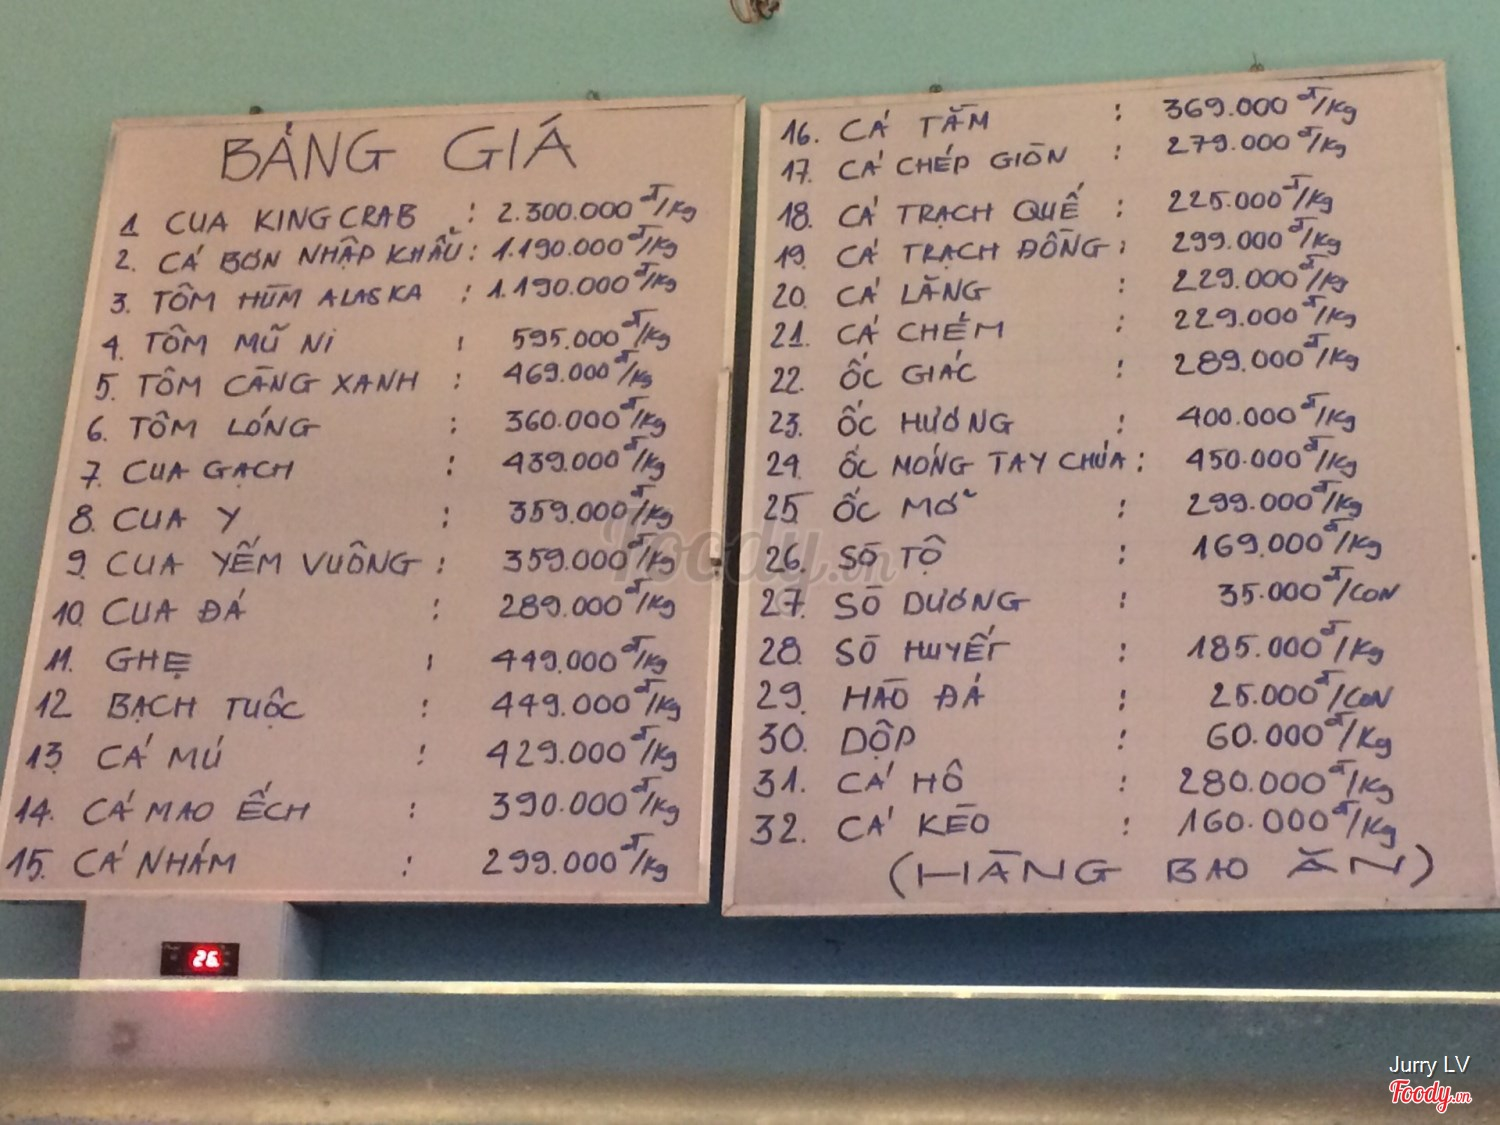 BẢNG GIÁ
1 CUA KINGCRAB : 2.300.000đ/Kg
2. CÁ BƠN NHẬP KHẨU : 1.190.000đ/Kg
3. TÔM HÙM ALASKA : 1.190.000đ/Kg
4. TÔM MŨ NI : 595.000đ/Kg
5. TÔM CÀNG XANH : 469.000đ/Kg
6. TÔM LÓNG : 360.000đ/Kg
7. CUA GẠCH : 439.000đ/Kg
8. CUA Y : 359.000đ/Kg
9. CUA YẾM VUÔNG : 359.000đ/Kg
10. CUA ĐÁ : 289.000đ/Kg
11. GHẸ : 449.000đ/Kg
12 BẠCH TUỘC : 449.000đ/Kg
13. CÁ MÚ : 429.000đ/Kg
14. CÁ MAO ẾCH : 390.000đ/Kg
15. CÁ NHÁM : 299.000đ/Kg
16. CÁ TẦM : 369.000đ/Kg
17. CÁ CHÉP GIÒN : 279.000đ/Kg
18. CÁ TRẠCH QUẾ : 225.000đ/Kg
19. CÁ TRẠCH ĐỒNG : 299.000đ/Kg
20. CÁ LĂNG : 229.000đ/Kg
21. CÁ CHẼM : 229.000đ/Kg
22. ỐC GIÁC : 289.000đ/Kg
23. ỐC HƯƠNG : 400.000đ/Kg
24. ỐC MÓNG TAY CHÚA : 450.000đ/Kg
25 ỐC MỠ : 299.000đ/Kg
26. SÒ TỘ : 169.000đ/Kg
27. SÒ DƯƠNG : 35.000đ/CON
28. SÒ HUYẾT : 185.000đ/Kg
29. HÀO ĐÁ : 25.000đ/CON
30. DỘP : 60.000đ/Kg
31. CÁ HÔ : 280.000đ/Kg
32. CÁ KÈO : 160.000đ/Kg
(HÀNG BAO ĂN)
Foody.vn
26
Jurry LV
Foody.vn